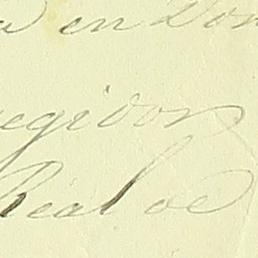 en Don
egidor
Real de